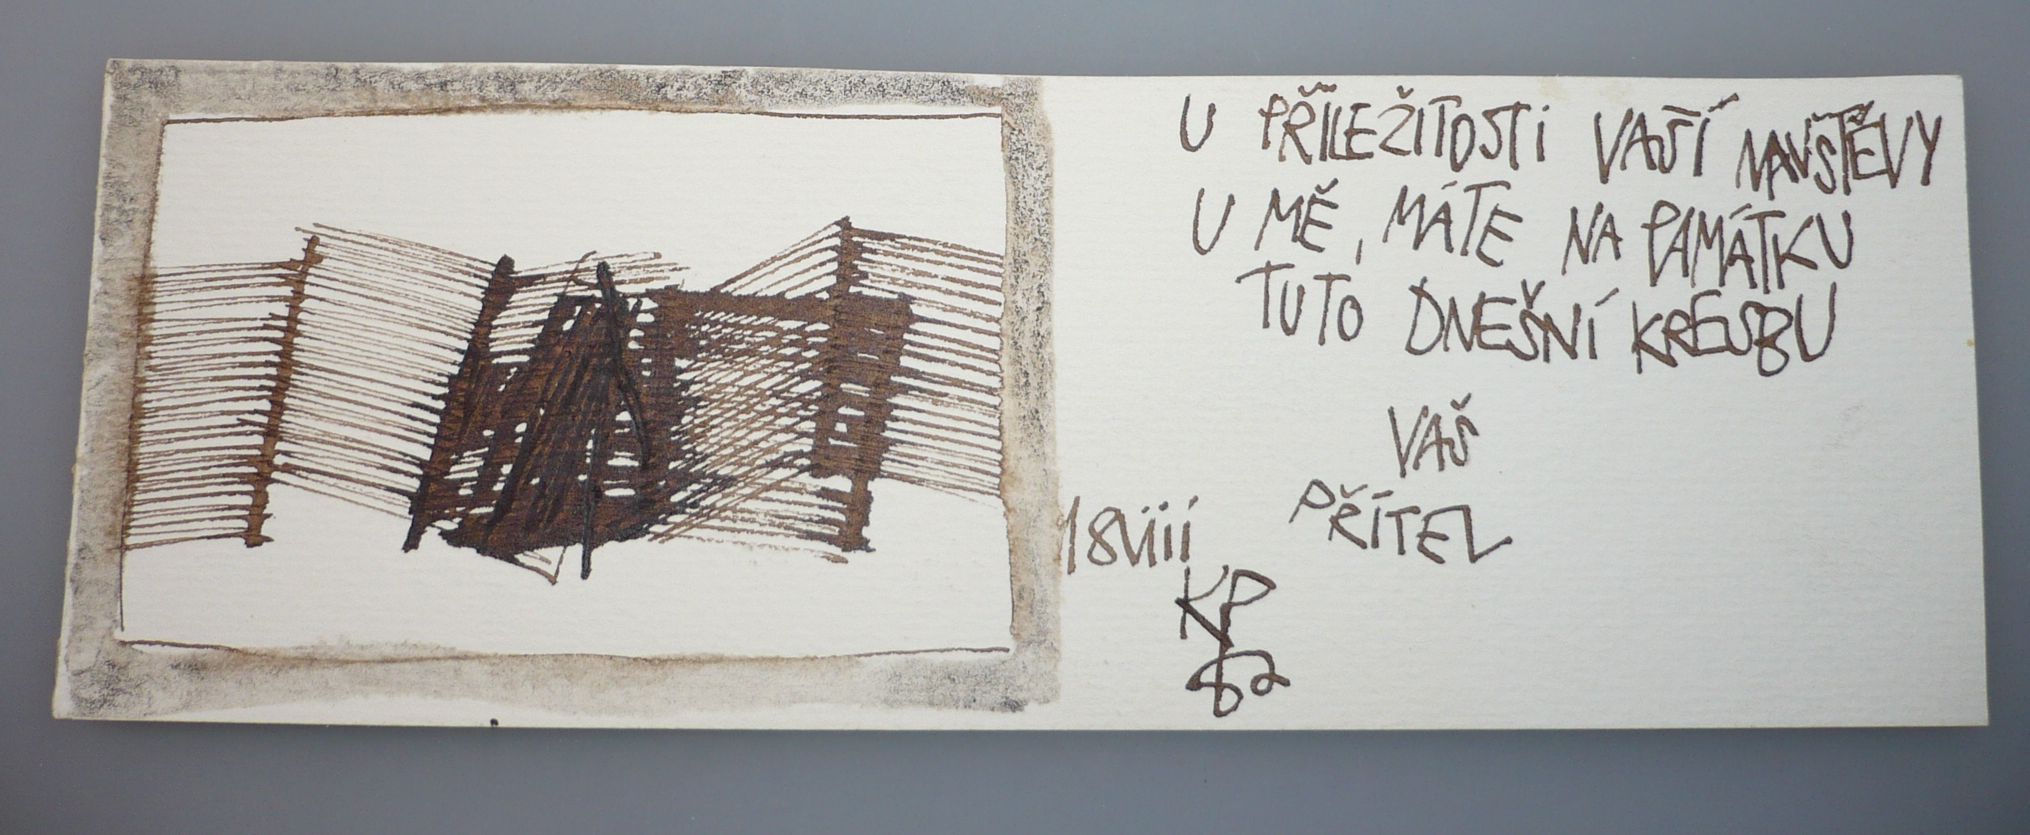 U PŘÍLEŽITOSTI VAŠÍ NAVŠTĚVY
U MĚ, MÁTE NA PAMÁTKU
TUTO DNEŠNÍ KRESBU
VAŠ
PŘÍTEL
18 VIII
KP
82